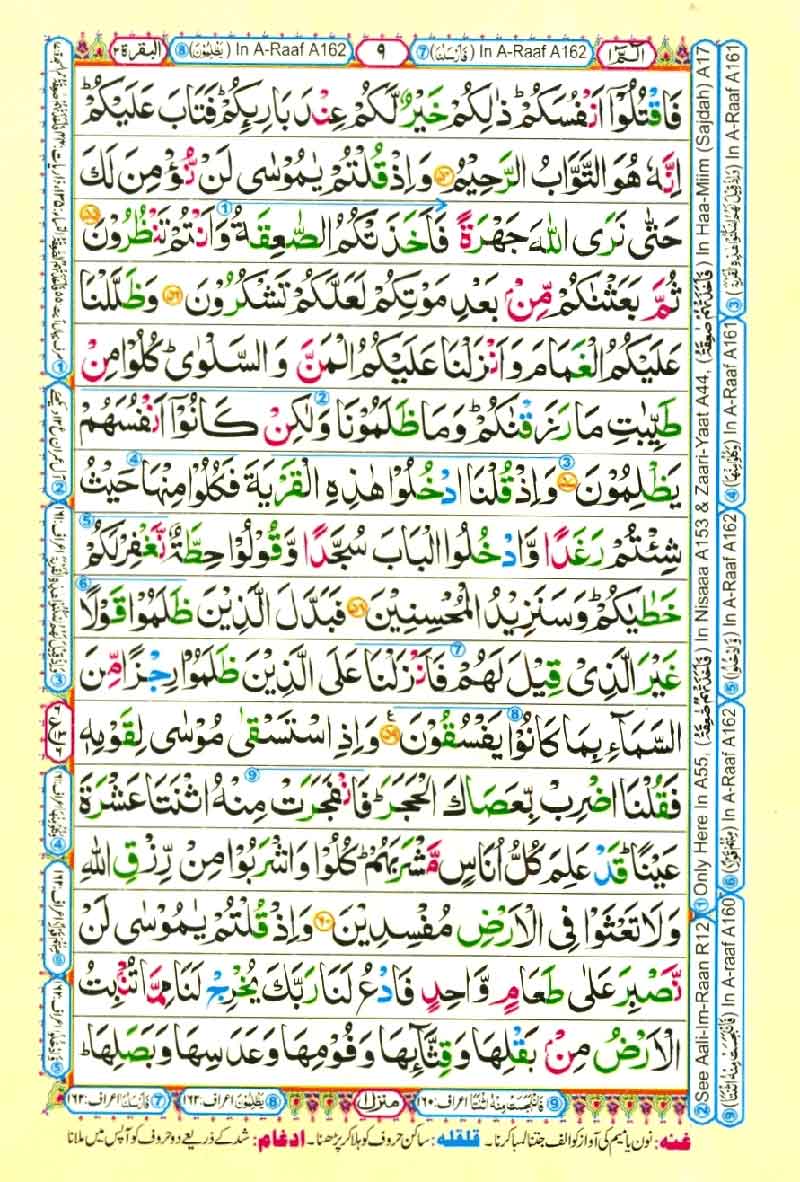 الٓمّٓ ۱
⑦ (فَاَرْسَلْنَا) In A-Raaf A162
۹
⑧ (يَظْلِمُوْنَ) In A-Raaf A162
البقرة ۲
فَاقْتُلُوْٓا اَنْفُسَكُمْ ؕ ذٰلِكُمْ خَيْرٌ لَّكُمْ عِنْدَ بَارِىِٕكُمْ ؕ فَتَابَ عَلَيْكُمْ ؕ
اِنَّهٗ هُوَ التَّوَّابُ الرَّحِيْمُ ۝۵۴ وَاِذْ قُلْتُمْ يٰمُوْسٰى لَنْ نُّؤْمِنَ لَكَ
حَتّٰى نَرَى اللّٰهَ جَهْرَةً فَاَخَذَتْكُمُ الصّٰعِقَةُ وَاَنْتُمْ تَنْظُرُوْنَ ۝۵۵
ثُمَّ بَعَثْنٰكُمْ مِّنْۢ بَعْدِ مَوْتِكُمْ لَعَلَّكُمْ تَشْكُرُوْنَ ۝۵۶ وَظَلَّلْنَا
عَلَيْكُمُ الْغَمَامَ وَاَنْزَلْنَا عَلَيْكُمُ الْمَنَّ وَالسَّلْوٰى ؕ كُلُوْا مِنْ
طَيِّبٰتِ مَا رَزَقْنٰكُمْ ؕ وَمَا ظَلَمُوْنَا وَلٰكِنْ كَانُوْٓا اَنْفُسَهُمْ
يَظْلِمُوْنَ ۝۵۷ وَاِذْ قُلْنَا ادْخُلُوْا هٰذِهِ الْقَرْيَةَ فَكُلُوْا مِنْهَا حَيْثُ
شِئْتُمْ رَغَدًا وَّادْخُلُوا الْبَابَ سُجَّدًا وَّقُوْلُوْا حِطَّةٌ نَّغْفِرْ لَكُمْ
خَطٰيٰكُمْ ؕ وَسَنَزِيْدُ الْمُحْسِنِيْنَ ۝۵۸ فَبَدَّلَ الَّذِيْنَ ظَلَمُوْا قَوْلًا
غَيْرَ الَّذِىْ قِيْلَ لَهُمْ فَاَنْزَلْنَا عَلَى الَّذِيْنَ ظَلَمُوْا رِجْزًا مِّنَ
السَّمَآءِ بِمَا كَانُوْا يَفْسُقُوْنَ ۝۵۹ وَاِذِ اسْتَسْقٰى مُوْسٰى لِقَوْمِهٖ
فَقُلْنَا اضْرِبْ بِّعَصَاكَ الْحَجَرَ ؕ فَانْفَجَرَتْ مِنْهُ اثْنَتَا عَشْرَةَ
عَيْنًا ؕ قَدْ عَلِمَ كُلُّ اُنَاسٍ مَّشْرَبَهُمْ ؕ كُلُوْا وَاشْرَبُوْا مِنْ رِّزْقِ اللّٰهِ
وَلَا تَعْثَوْا فِى الْاَرْضِ مُفْسِدِيْنَ ۝۶۰ وَاِذْ قُلْتُمْ يٰمُوْسٰى لَنْ
نَّصْبِرَ عَلٰى طَعَامٍ وَّاحِدٍ فَادْعُ لَنَا رَبَّكَ يُخْرِجْ لَنَا مِمَّا تُنْۢبِتُ
الْاَرْضُ مِنْۢ بَقْلِهَا وَقِثَّآىِٕهَا وَفُوْمِهَا وَعَدَسِهَا وَبَصَلِهَا ؕ
① Only Here In A55, (فَاَخَذَتْهُمُ الصّٰعِقَةُ) In Nisaaa A153 & Zaari-Yaat A44, In Haa-Miim (Sajdah) A17
② See Aali-Im-Raan R12
③ In A-Raaf A161
④ (وَكُلُوْا مِنْهَا) In A-Raaf A161
⑤ (وَادْخُلُوا) In A-Raaf A162
⑥ In A-Raaf A162
⑨ (فَانْۢبَجَسَتْ مِنْهُ اثْنَتَا) In A-raaf A160
⑨ فَانْۢبَجَسَتْ مِنْهُ اثْنَتَا اعراف: ۱۶۰
منزل ۱
⑧ يَظْلِمُوْنَ اعراف: ۱۶۲
⑦ فَاَرْسَلْنَا اعراف: ۱۶۲
غنہ: نون یا میم کی آواز کو الف جتنا لمبا کرنا۔ قلقلہ: ساکن حروف کو ہلا کر پڑھنا۔ ادغام: شد کے ذریعے دو حروف کو آپس میں ملانا